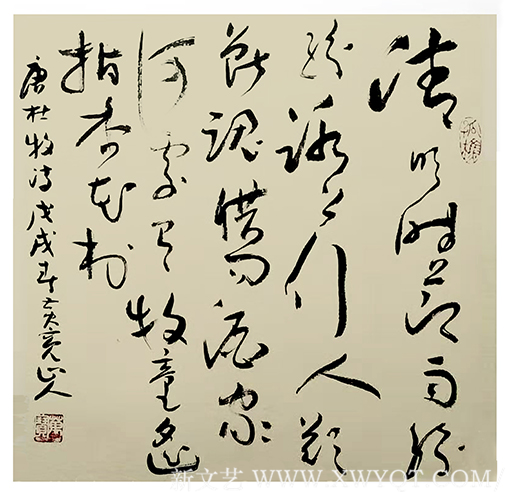 清明時節雨紛
紛路上行人欲
断魂借問酒家
何處有牧童遥
指杏花村
唐杜牧诗戊戌春山人
新文艺 WWW.XWYQT.COM